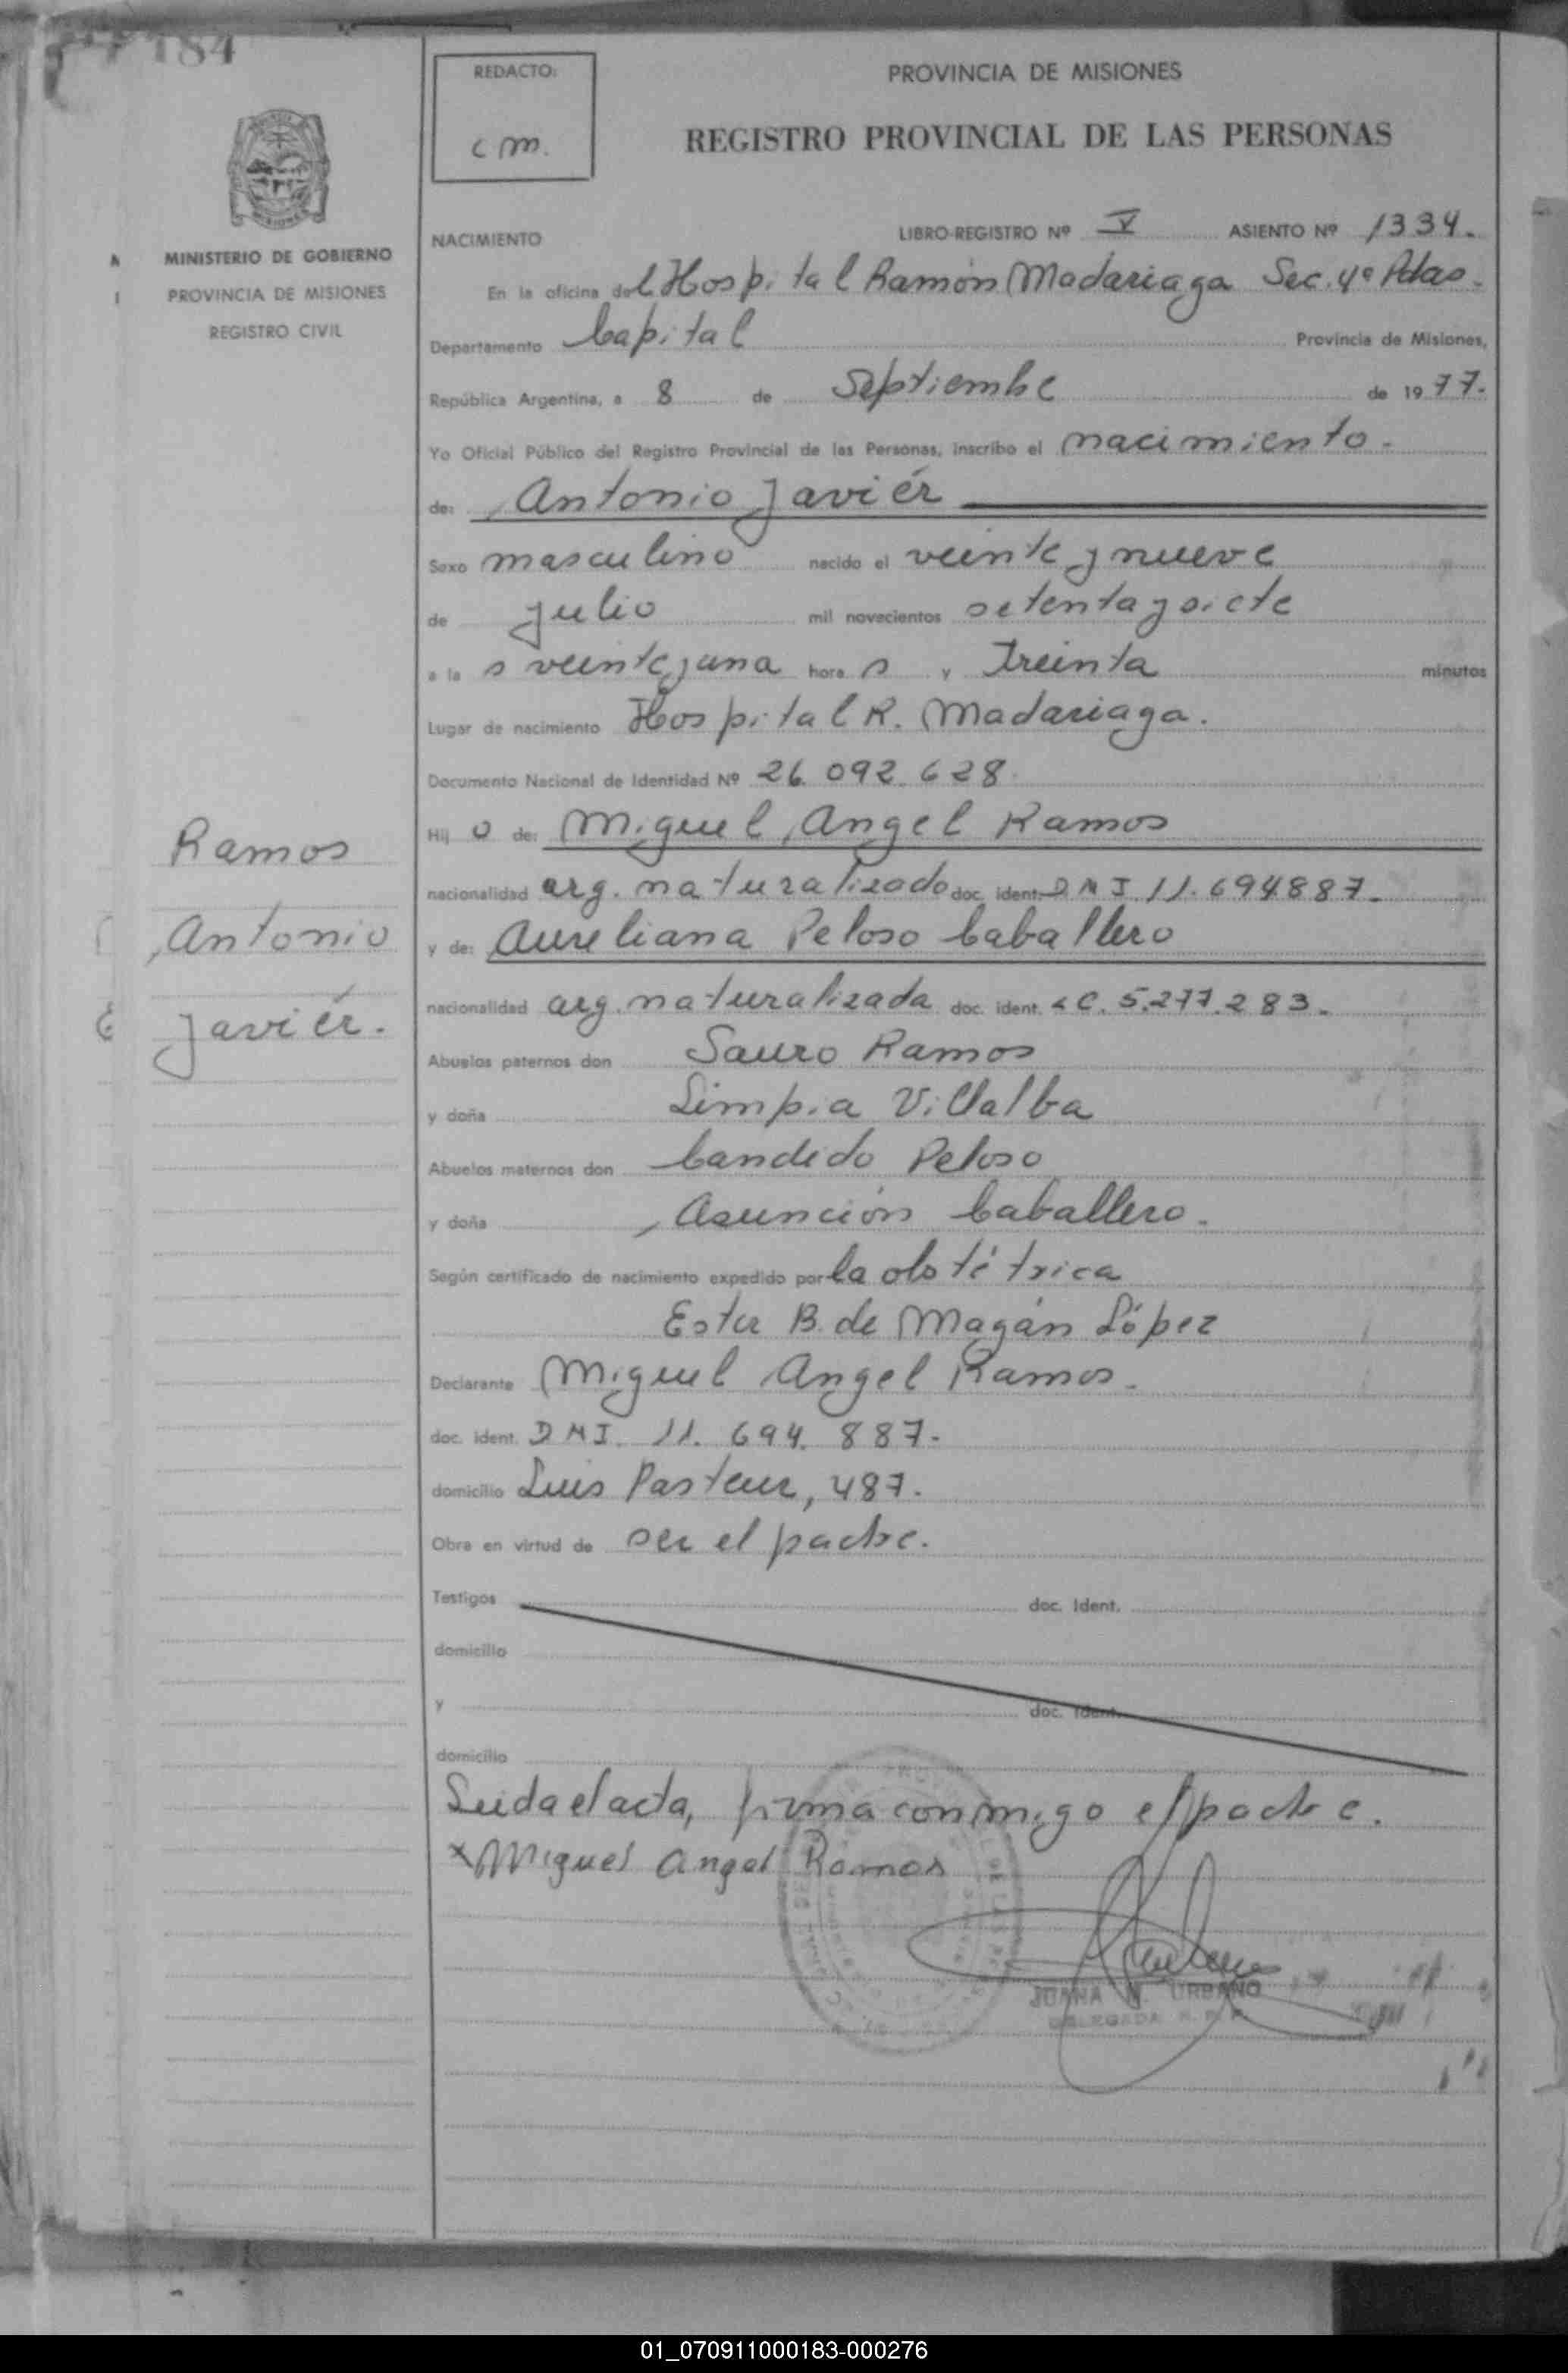 184
MINISTERIO DE GOBIERNO
PROVINCIA DE MISIONES
REGISTRO CIVIL
Ramos
Antonio
Javiér.
REDACTO:
C M.
PROVINCIA DE MISIONES
REGISTRO PROVINCIAL DE LAS PERSONAS
NACIMIENTO LIBRO-REGISTRO Nº V ASIENTO Nº 1334.
En la oficina del Hospital Ramón Madariaga Sec. 4ª Pdas.
Departamento Capital Provincia de Misiones,
República Argentina, a 8 de Septiembre de 1977.
Yo Oficial Público del Registro Provincial de las Personas, inscribo el nacimiento.
de: Antonio Javiér
Sexo masculino nacido el veinte y nueve
de julio mil novecientos setenta y siete
a la s veinte y una hora s y Treinta minutos
Lugar de nacimiento Hospital R. Madariaga.
Documento Nacional de Identidad Nº 26.092.628
Hij o de: Miguel Angel Ramos
nacionalidad arg. naturalizado doc. ident. DNI 11.694887.
y de: Aureliana Peloso Caballero
nacionalidad arg. naturalizada doc. ident. LC. 5.277.283.
Abuelos paternos don Sauro Ramos
y doña Limpia Villalba
Abuelos maternos don Candido Peloso
y doña Asunción Caballero.
Según certificado de nacimiento expedido por la obstétrica
Ester B. de Magán López
Declarante Miguel Angel Ramos.
doc. ident. DNI. 11. 694. 887.
domicilio Luis Pasteur, 487.
Obra en virtud de ser el padre.
Testigos doc. Ident.
domicilio
y doc. Ident.
domicilio
Leida el acta, firma conmigo el padre.
x Miguel Angel Ramos
JUANA URBANO
DELEGADA R. P. P.
01_070911000183-000276